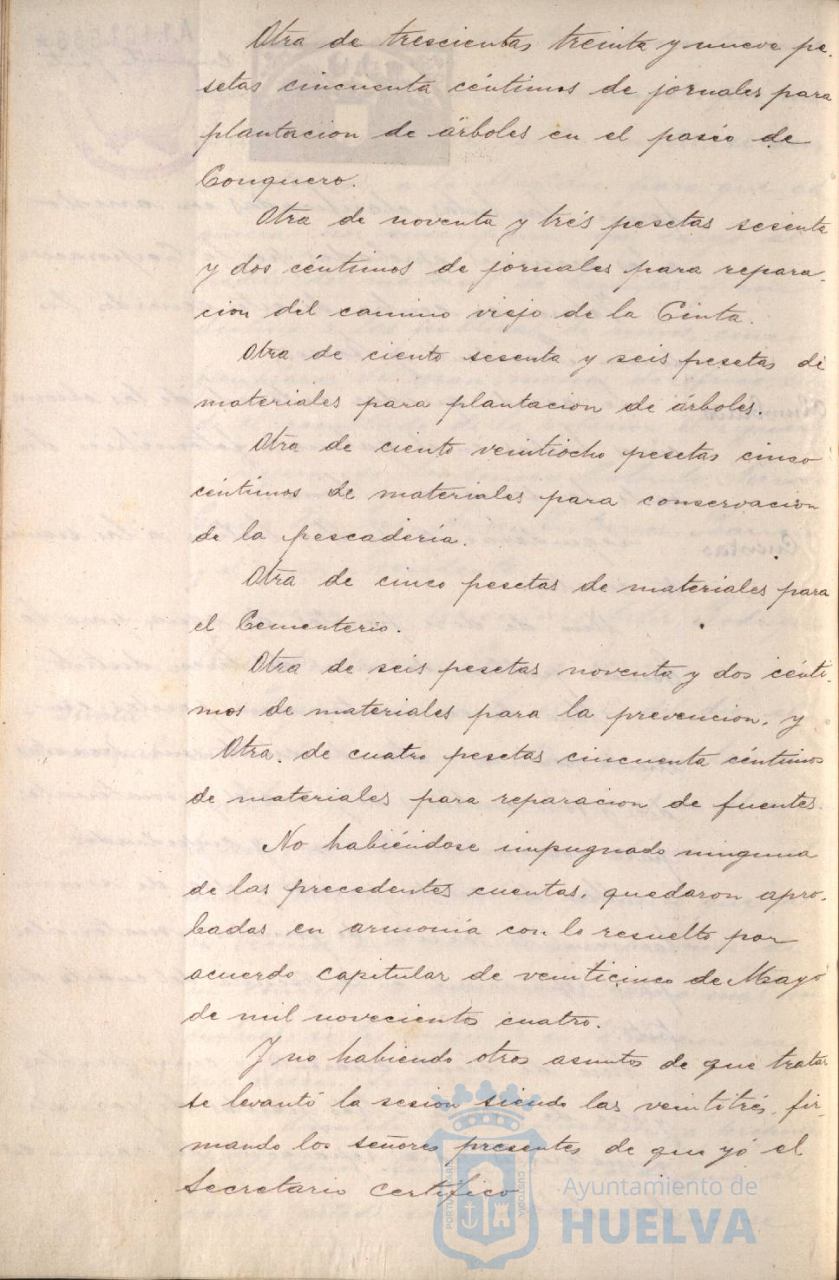 Otra de trescientas treinta y nueve pe-
setas cincuenta céntimos de jornales para
plantacion de árboles en el paseo de
Conquero.
Otra de noventa y trés pesetas sesenta
y dos céntimos de jornales para repara-
cion del camino viejo de la Cinta.
Otra de ciento sesenta y seis pesetas de
materiales para plantacion de árboles.
Otra de ciento veintiocho pesetas cinco
céntimos de materiales para conservacion
de la pescadería.
Otra de cinco pesetas de materiales para
el Cementerio.
Otra de seis pesetas noventa y dos cénti-
mos de materiales para la prevencion, y
Otra de cuatro pesetas cincuenta céntimos
de materiales para reparacion de fuentes.
No habiéndose impugnado ninguna
de las precedentes cuentas, quedaron apro-
badas en armonía con lo resuelto por
acuerdo capitular de veinticinco de Mayo
de mil novecientos cuatro.
Y no habiendo otros asuntos de que tratar
se levantó la sesion siendo las veintitrés, fir-
mando los señores presentes de que yó el
Secretario certifico
PORTUS MARIS
CUSTODIA
Ayuntamiento de
HUELVA